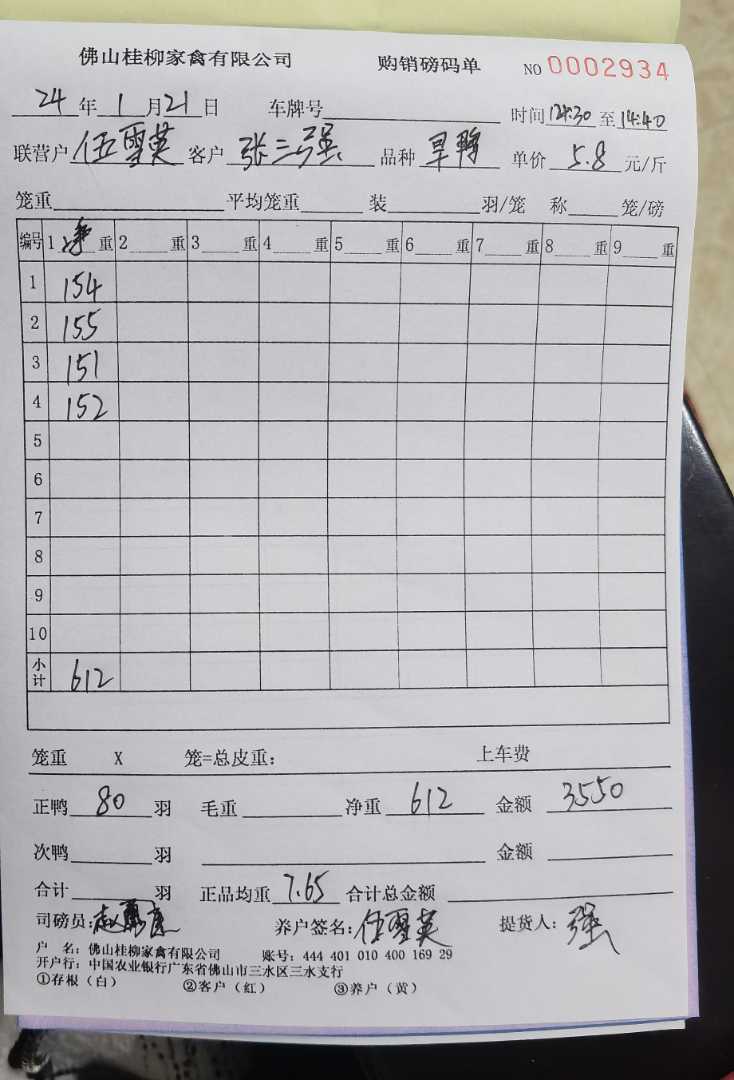 佛山桂柳家禽有限公司 购销磅码单 NO 0002934
24年1月21日 车牌号 时间12:30至14:40
联营户 伍雪英 客户 张三强 品种 旱鸭 单价 5.8 元/斤
笼重 平均笼重 装 羽/笼 称 笼/磅
编号 1 净重 2 重 3 重 4 重 5 重 6 重 7 重 8 重 9 重
1 154
2 155
3 151
4 152
5
6
7
8
9
10
小计 612
笼重 X 笼=总皮重: 上车费
正鸭 80 羽 毛重 净重 612 金额 3550
次鸭 羽 金额
合计 羽 正品均重 7.65 合计总金额
司磅员: 养户签名: 伍雪英 提货人: 强
户 名: 佛山桂柳家禽有限公司 账号: 444 401 010 400 169 29
开户行: 中国农业银行广东省佛山市三水区三水支行
①存根（白） ②客户（红） ③养户（黄）